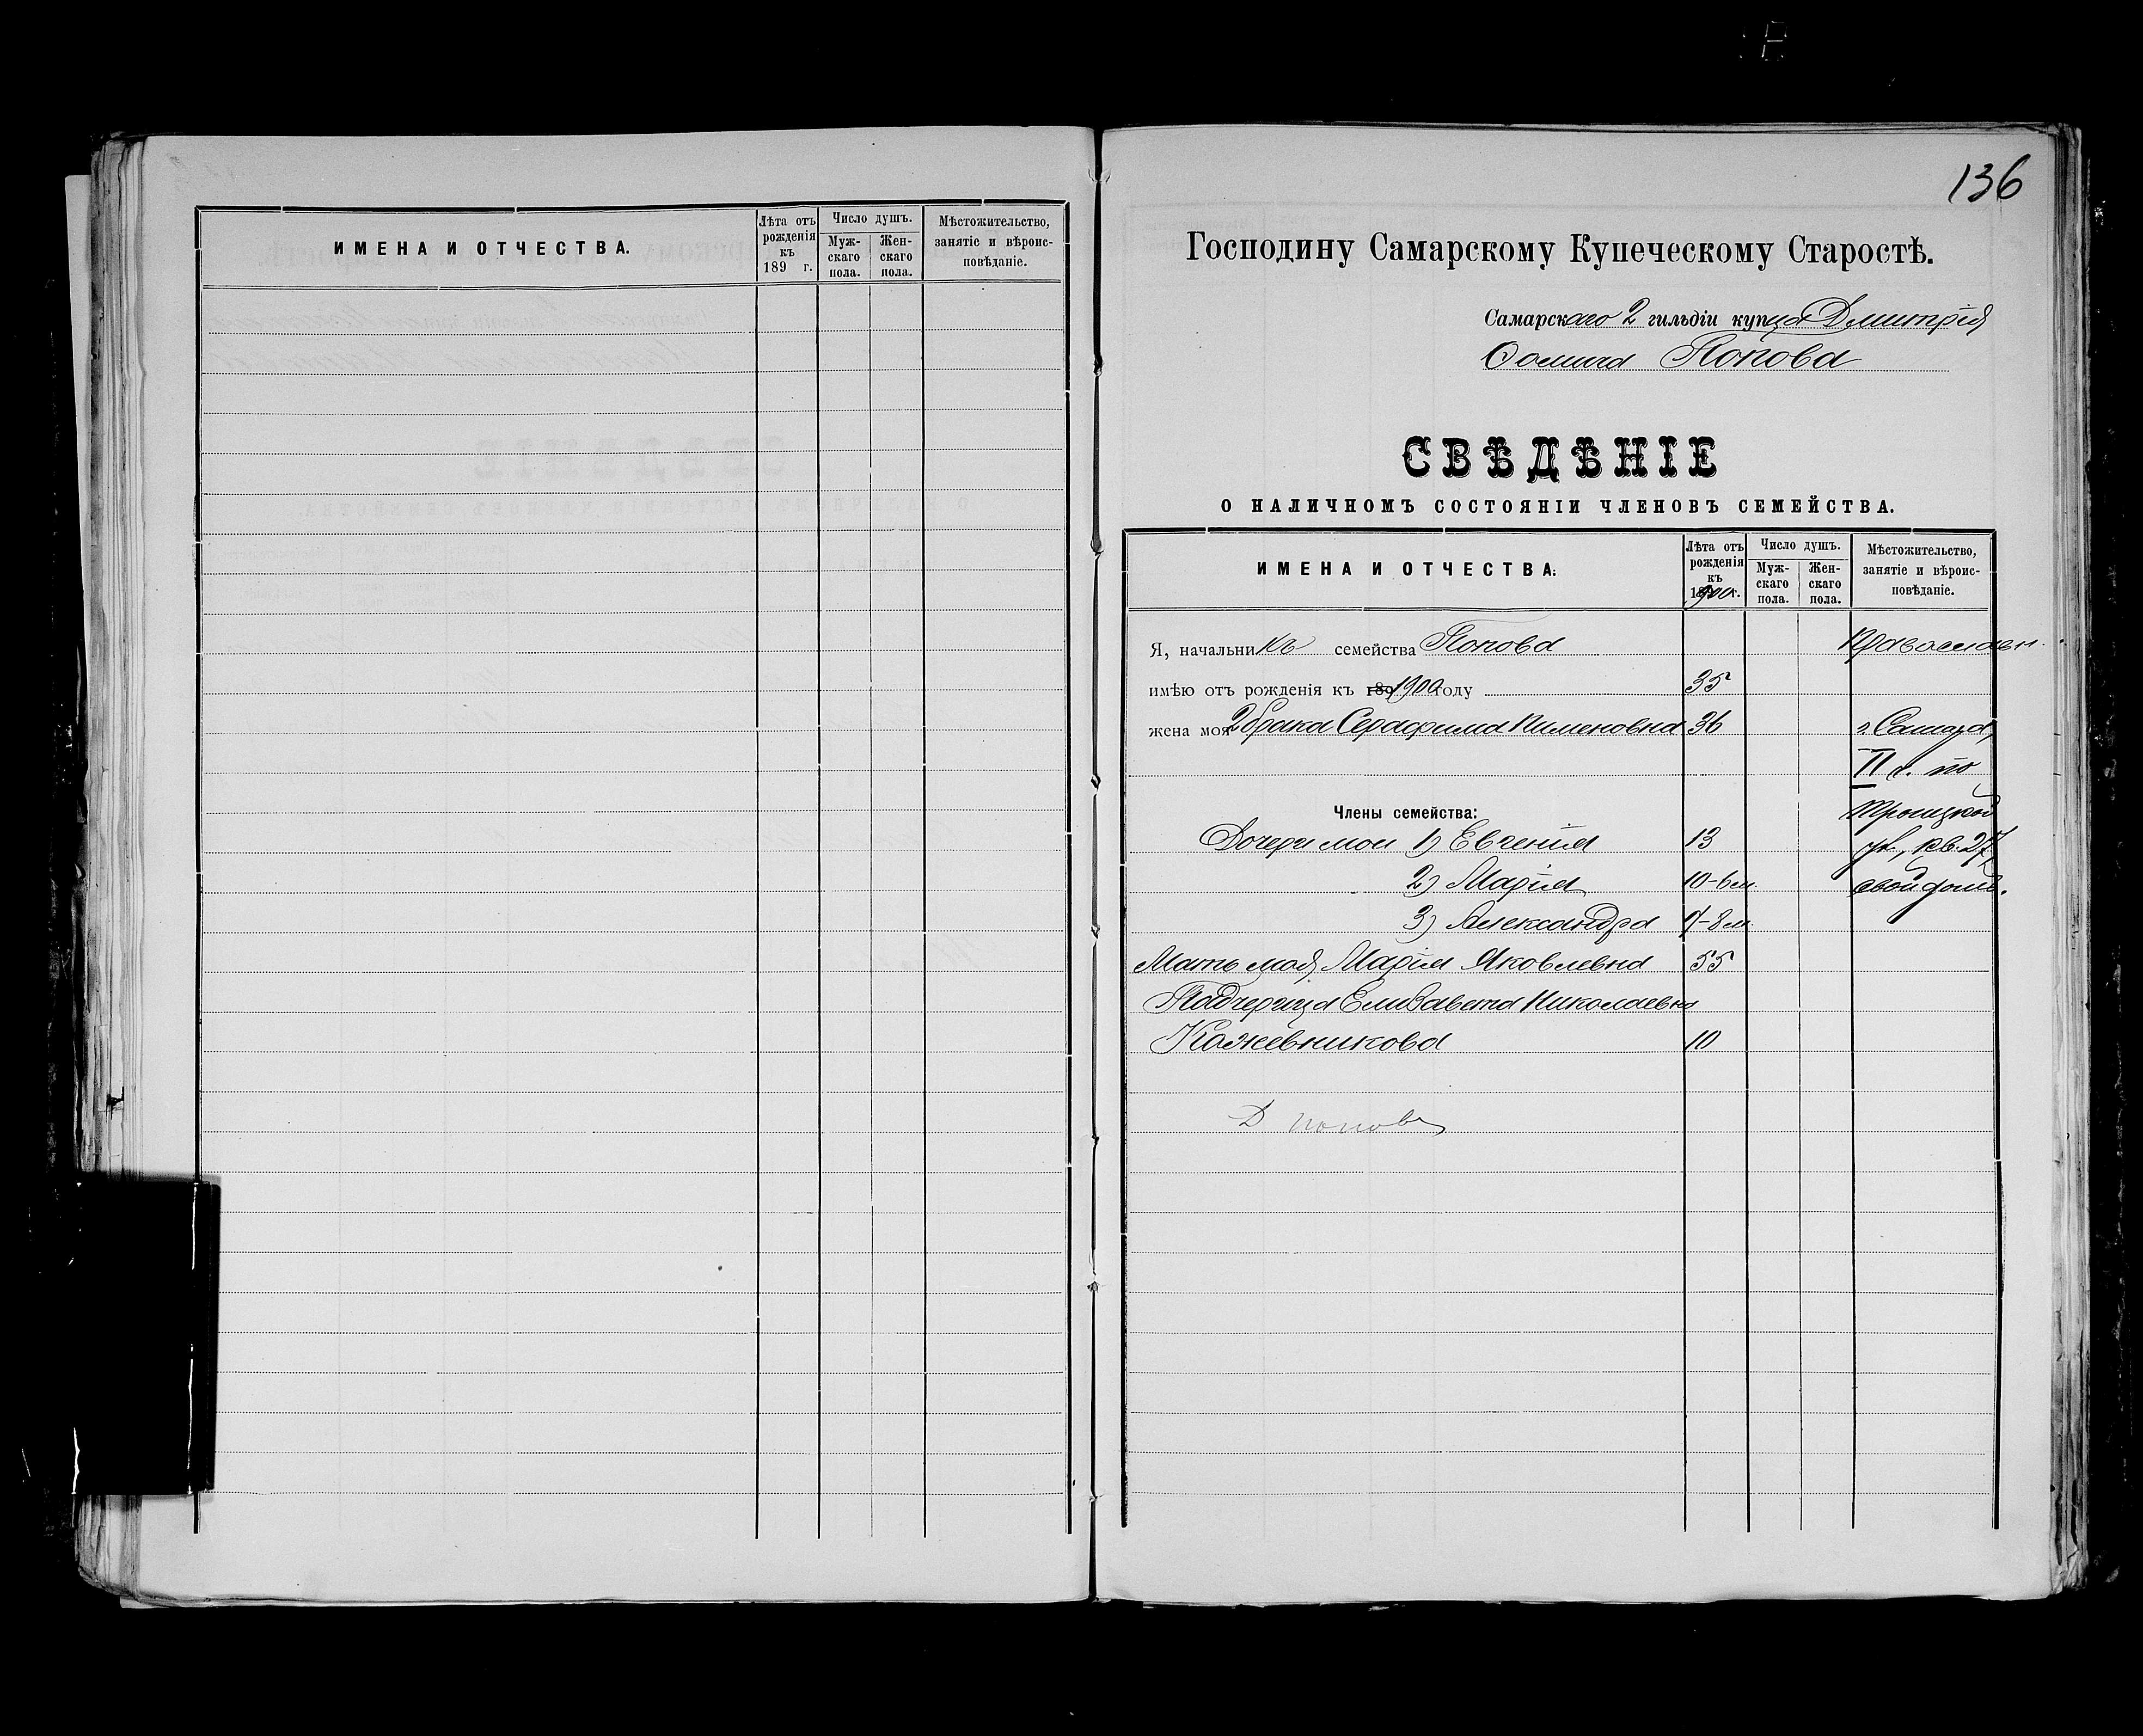 ИМЕНА И ОТЧЕСТВА.
Лѣта отъ рожденія къ 189 г.
Число душъ.
Муж-скаго пола.
Жен-скаго пола.
Мѣстожительство, занятіе и вѣроис-повѣданіе.
136
Господину Самарскому Купеческому Старостѣ.
Самарскаго 2 гильдіи купца Дмитрія
Ѳомича Попова
СВѢДѢНІЕ
О НАЛИЧНОМЪ СОСТОЯНІИ ЧЛЕНОВЪ СЕМЕЙСТВА.
ИМЕНА И ОТЧЕСТВА.
Лѣта отъ рожденія къ 1900 г.
Число душъ.
Муж-скаго пола.
Жен-скаго пола.
Мѣстожительство, занятіе и вѣроис-повѣданіе.
Я, начальникъ семейства Попова Православн.
имѣю отъ рожденія къ 189 1900 году 35
жена моя 2 брака Серафима Пименовна 36 г. Самара,
II ч. по
Члены семейства: Троицкой
Дочери мои 1) Евгенія 13 ул., кв. 27,
2) Марія 10-6 м. свой домъ.
3) Александра 9-8 м.
Мать моя Марія Яковлевна 55
Падчерица Елизавета Николаевна
Кожевникова 10
Д Поповъ